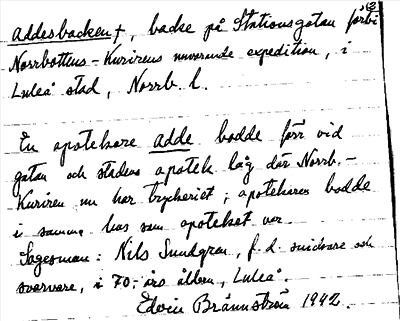 Addesbacken†, backe på Stationsgatan förbi
Norrbottens-Kurirens nuvarande expedition, i
Luleå stad, Norrb. l.
En apotekare Adde bodde förr vid
gatan och stadens apotek låg där Norrb.-
Kuriren nu har tryckeriet; apotekaren bodde
i samma hus som apoteket var.
Sagesman: Nils Sundgren, f.d. snickare och
svarvare, i 70-års åldern, Luleå.
Edvin Brännström 1942.